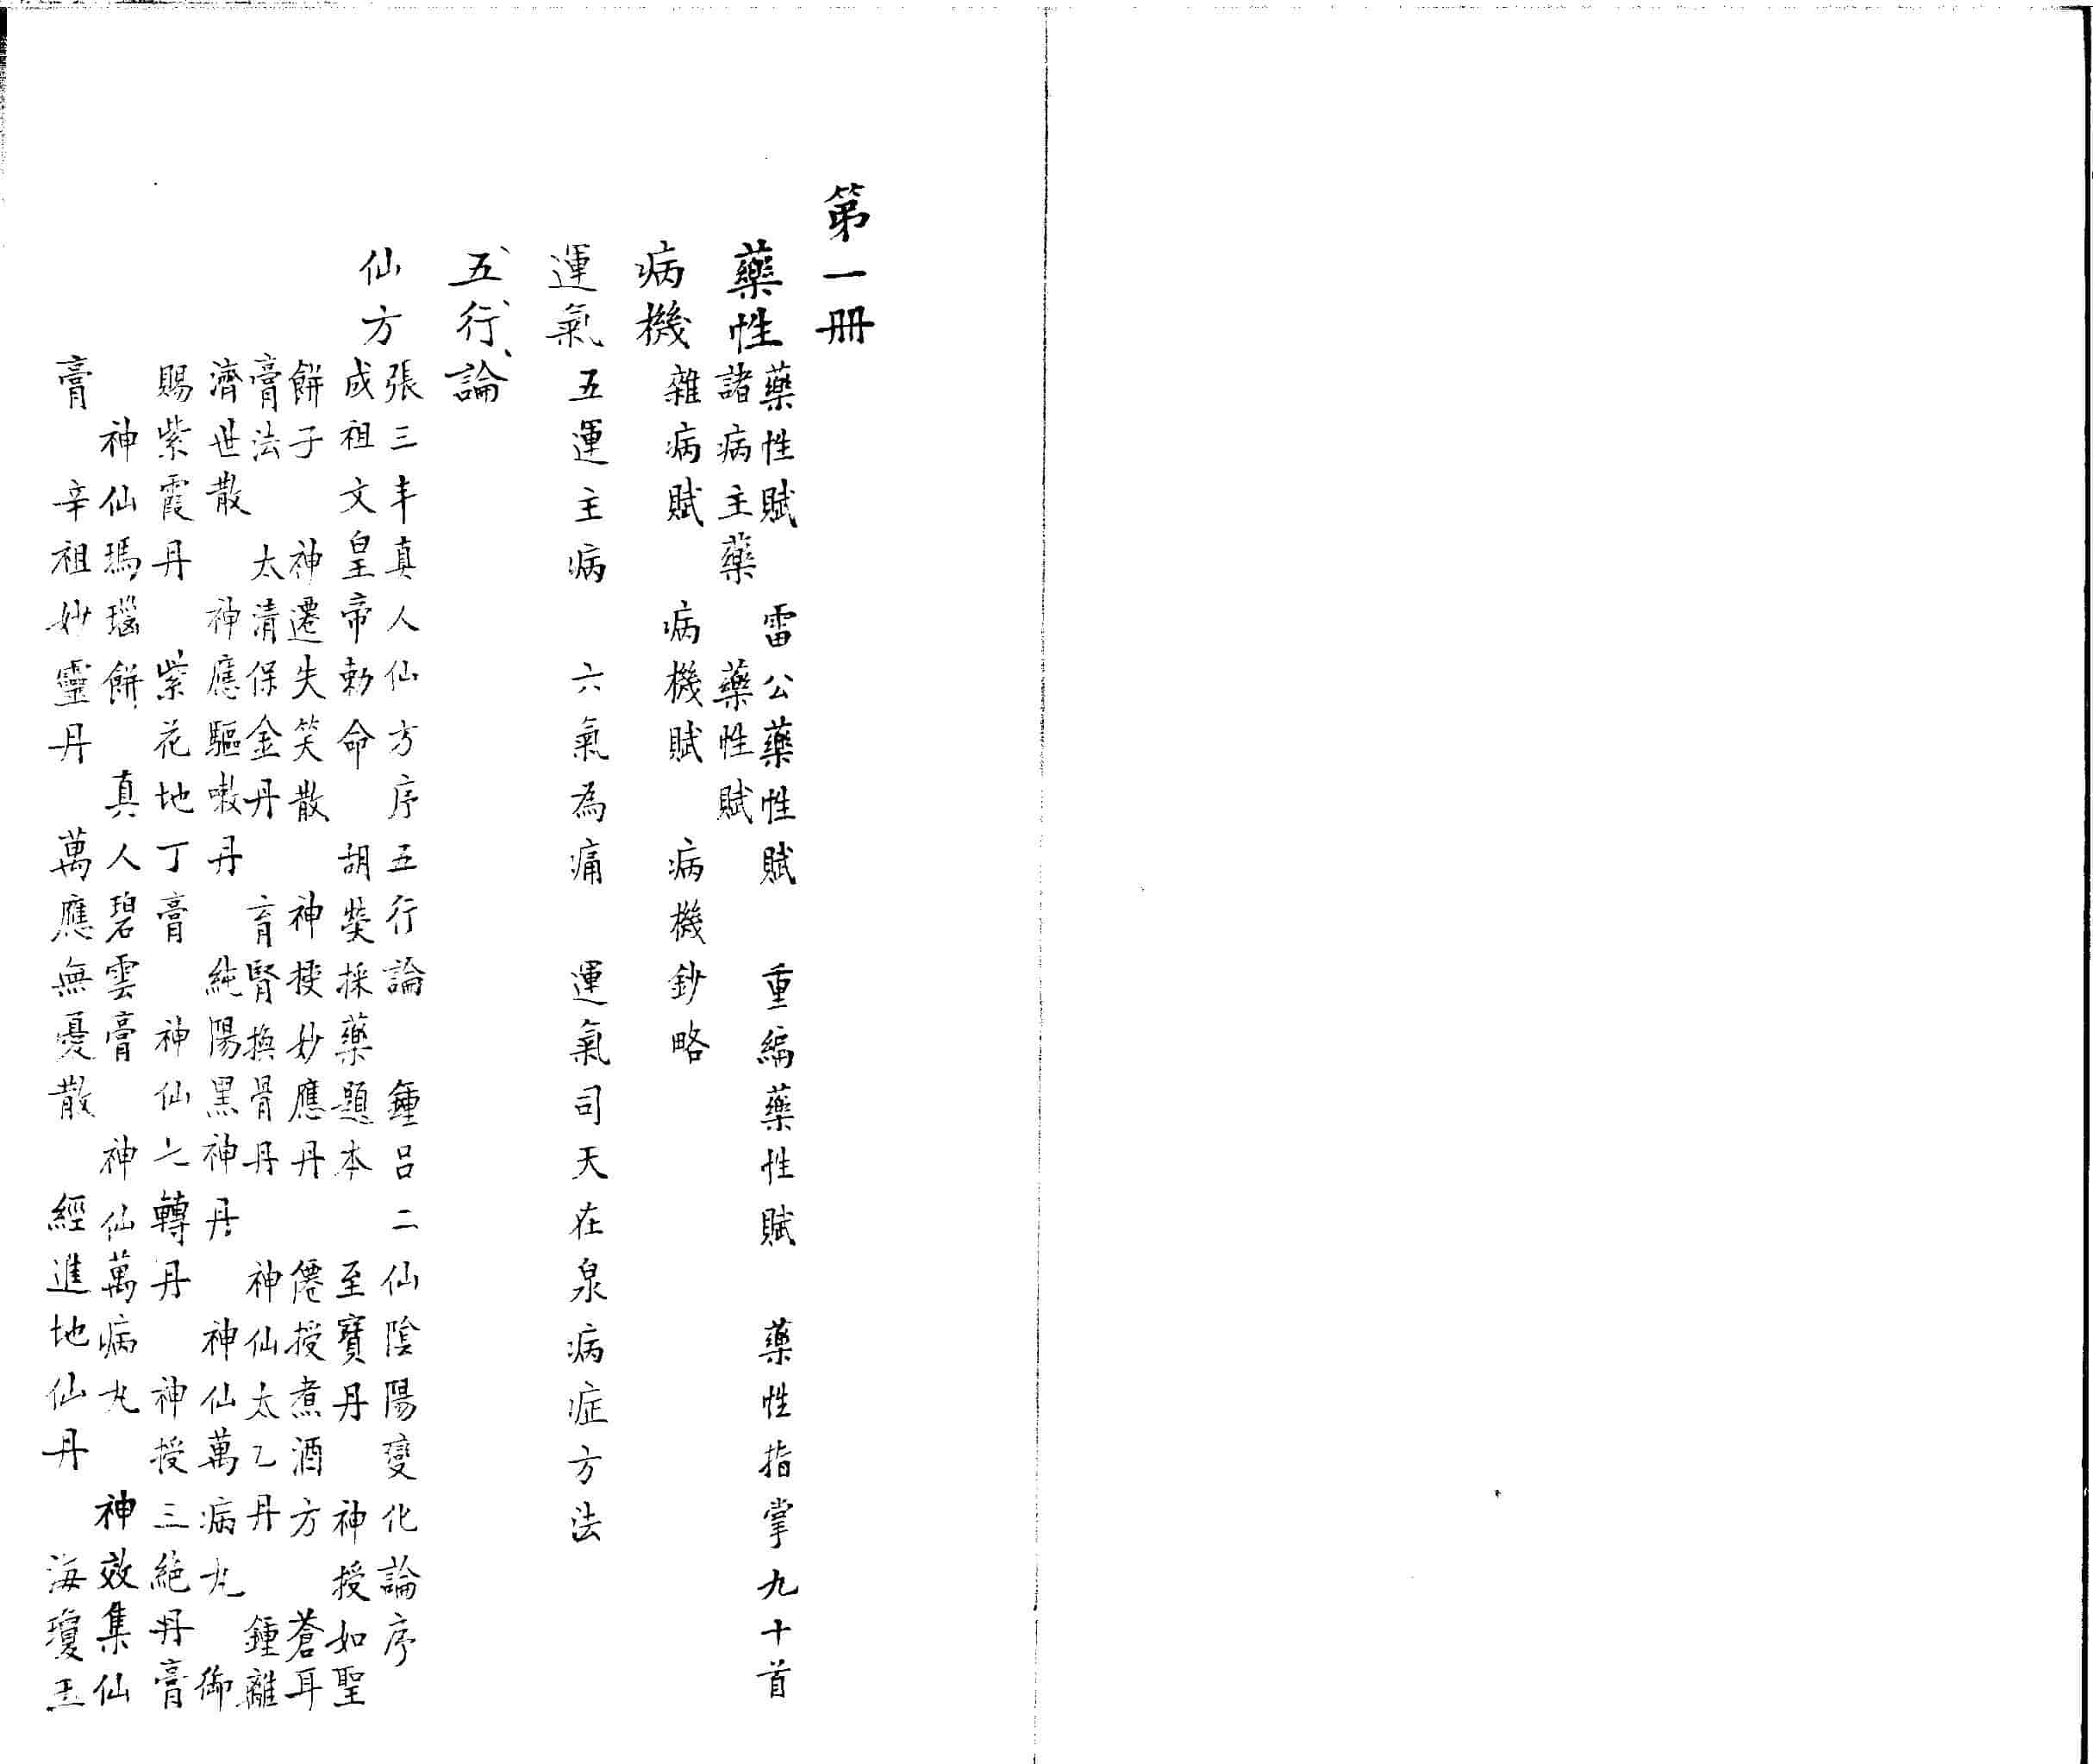 第一冊
藥性
藥性賦　雷公藥性賦　重編藥性賦　藥性指掌九十首
諸病主藥　藥性賦
病機　雜病賦　病機賦　病機鈔略
運氣　五運主病　六氣為痛　運氣司天在泉病症方法
五行論
仙方
張三丰真人仙方序五行論　鍾呂二仙陰陽變化論序
成祖文皇帝勅命　胡㷫採藥題本　至寶丹　神授如聖
餅子　神遷失笑散　神授妙應丹　僊授煮酒方　蒼耳
膏法　太清保金丹　育腎換骨丹　神仙太乙丹　鍾離
濟世散　神應驅嗽丹　純陽黑神丹　神仙萬病丸　御
賜紫霞丹　紫花地丁膏　神仙七轉丹　神授三絕丹膏
神仙瑪瑙餅　真人碧雲膏　神仙萬病丸　神效集仙
膏　辛祖妙靈丹　萬應無憂散　經進地仙丹　海瓊玉